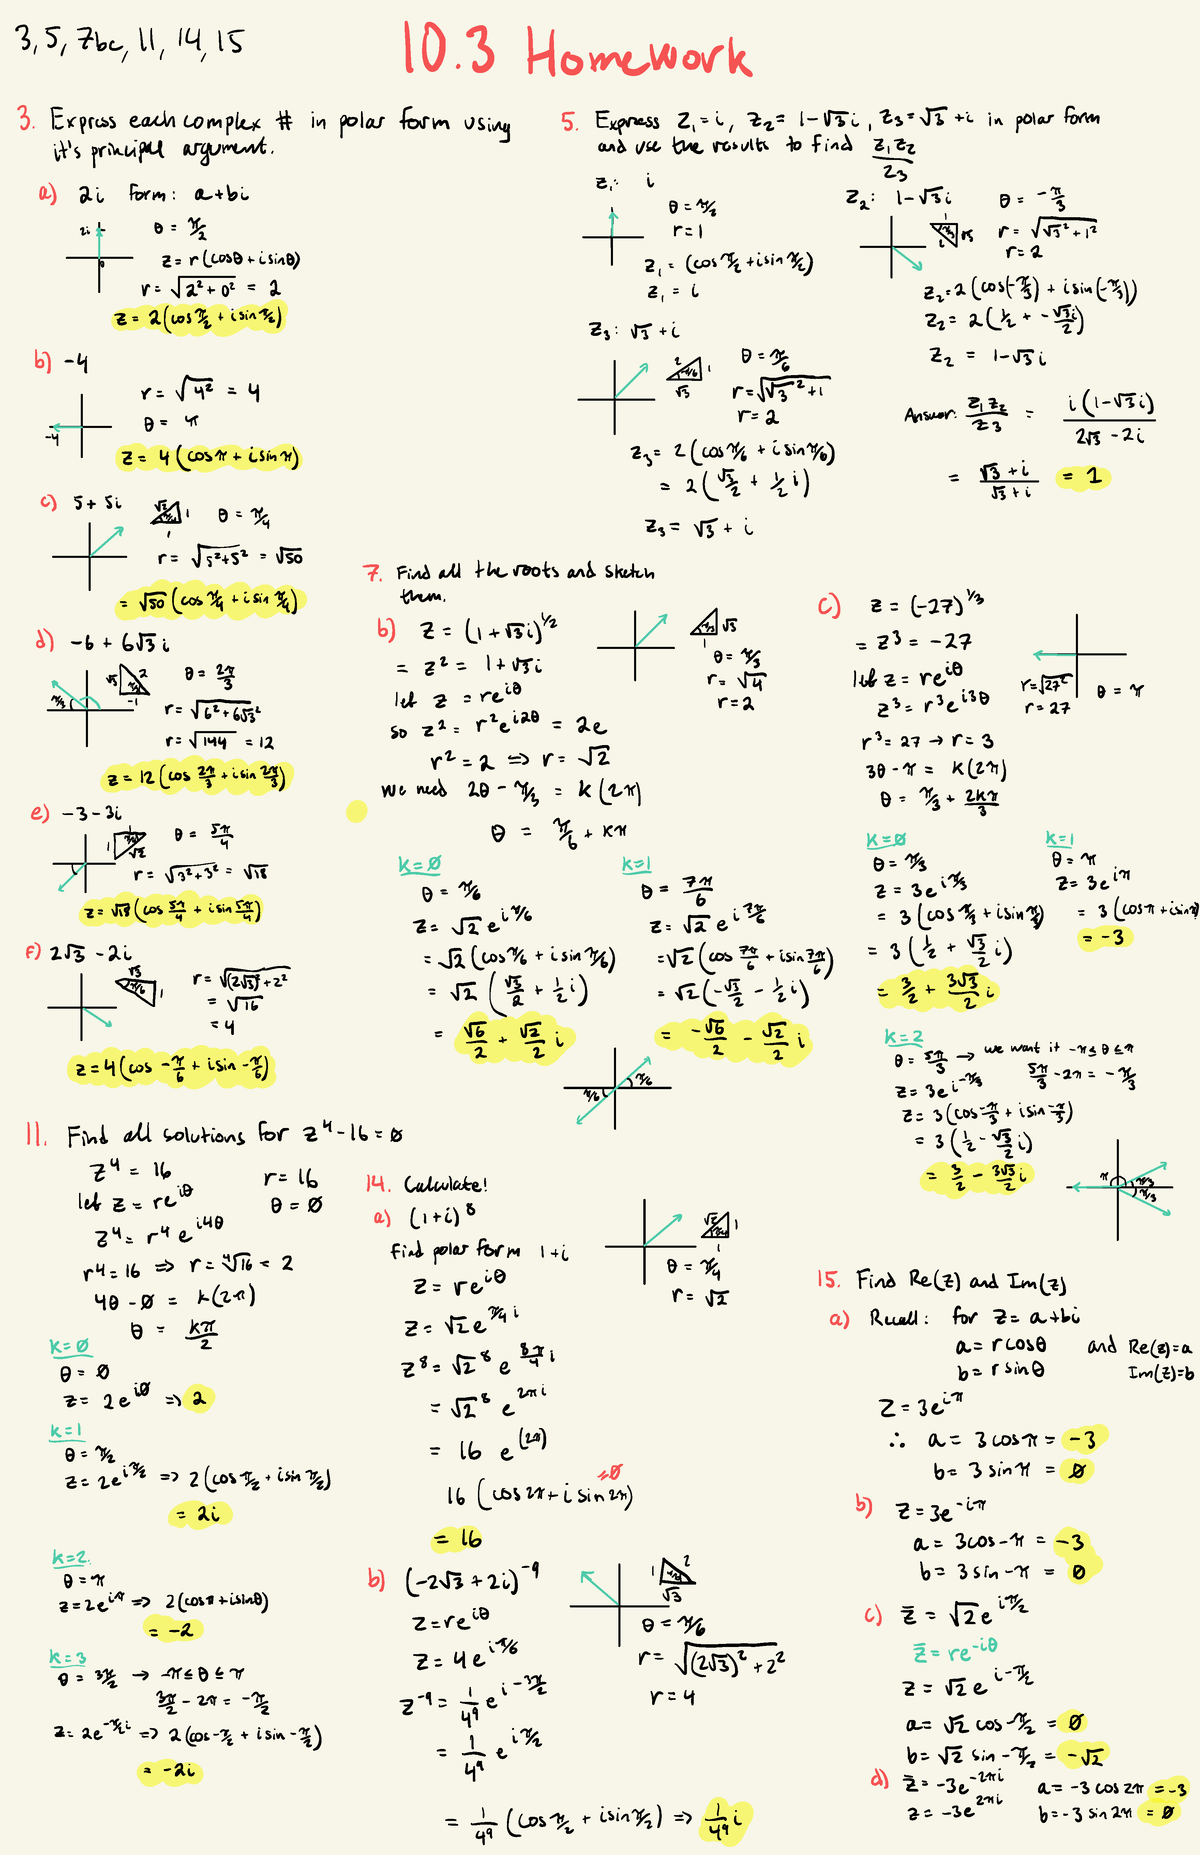 3, 5, 7bc, 11, 14, 15
10.3 Homework
3. Express each complex # in polar form using
it's principal argument.
a) 2i form: a+bi
2i
θ = π/2
z = r(cosθ + isinθ)
r = √(2² + 0²) = 2
z = 2(cos π/2 + isin π/2)
b) -4
r = √(4²) = 4
-4
θ = π
z = 4(cosπ + isinπ)
c) 5 + 5i
√2 1 1
θ = π/4
r = √(5²+5²) = √50
= √50(cos π/4 + isin π/4)
d) -6 + 6√3 i
√3 2 -1
π/3
θ = 2π/3
r = √(6² + 6√3²)
r = √144 = 12
z = 12(cos 2π/3 + isin 2π/3)
e) -3 - 3i
1 1 √2
θ = 5π/4
r = √(3²+3²) = √18
z = √18(cos 5π/4 + isin 5π/4)
f) 2√3 - 2i
√3 π/6 1
r = √((2√3)² + 2²)
= √16
= 4
z = 4(cos -π/6 + isin -π/6)
5. Express z₁ = i, z₂ = 1-√3i, z₃ = √3 + i in polar form
and use the results to find z₁z₂/z₃
z₁: i
θ = π/2
r = 1
z₁ = (cos π/2 + isin π/2)
z₁ = i
z₂: 1-√3i
θ = -π/3
r = √(√3² + 1²)
r = 2
z₂ = 2(cos(-π/3) + isin(-π/3))
z₂ = 2(1/2 + -√3i/2)
z₂ = 1-√3i
z₃: √3 + i
2 π/6 1 √3
θ = π/6
r = √(√3² + 1)
r = 2
z₃ = 2(cos π/6 + isin π/6)
= 2(√3/2 + 1/2 i)
z₃ = √3 + i
Answer: z₁z₂/z₃ = i(1-√3i)/(2√3 - 2i)
= (√3 + i)/(√3 + i) = 1
7. Find all the roots and sketch
them.
b) z = (1 + √3i)^1/2
= z² = 1 + √3i
let z = re^iθ
so z² = r²e^i2θ = 2e
r² = 2 ⇒ r = √2
we need 2θ - π/3 = k(2π)
θ = π/6 + kπ
π/3 √3 1
θ = π/3
r = √4
r = 2
k=0
θ = π/6
z = √2 e^iπ/6
= √2(cos π/6 + isin π/6)
= √2(√3/2 + 1/2 i)
= √6/2 + √2/2 i
k=1
θ = 7π/6
z = √2 e^i7π/6
= √2(cos 7π/6 + isin 7π/6)
= √2(-√3/2 - 1/2 i)
= -√6/2 - √2/2 i
π/6 π/6
c) z = (-27)^1/3
= z³ = -27
let z = re^iθ
z³ = r³e^i3θ
r³ = 27 → r = 3
3θ - π = k(2π)
θ = π/3 + 2kπ/3
r = √27²
r = 27
θ = π
k=0
θ = π/3
z = 3e^iπ/3
= 3(cos π/3 + isin π/3)
= 3(1/2 + √3/2 i)
= 3/2 + 3√3/2 i
k=1
θ = π
z = 3e^iπ
= 3(cosπ + isinπ)
= -3
k=2
θ = 5π/3 → we want it -π≤θ≤π
5π/3 - 2π = -π/3
z = 3e^i-π/3
z = 3(cos -π/3 + isin -π/3)
= 3(1/2 - √3/2 i)
= 3/2 - 3√3/2 i
π π/3 π/3
11. Find all solutions for z⁴ - 16 = 0
z⁴ = 16
r = 16
let z = re^iθ
θ = 0
z⁴ = r⁴ e^i4θ
r⁴ = 16 ⇒ r = ⁴√16 = 2
4θ - 0 = k(2π)
θ = kπ/2
k=0
θ = 0
z = 2e^i0 ⇒ 2
k=1
θ = π/2
z = 2e^iπ/2 ⇒ 2(cos π/2 + isin π/2)
= 2i
k=2
θ = π
z = 2e^iπ ⇒ 2(cosπ + isinθ)
= -2
k=3
θ = 3π/2 → -π≤θ≤π
3π/2 - 2π = -π/2
z = 2e^-π/2 i ⇒ 2(cos -π/2 + isin -π/2)
= -2i
14. Calculate!
a) (1+i)⁸
find polar form 1+i
z = re^iθ
z = √2e^π/4 i
z⁸ = √2⁸ e^8π/4 i
= √2⁸ e^2πi
= 16 e^(2π)
=0
16(cos2π + isin2π)
= 16
√2 π/4 1 1
θ = π/4
r = √2
b) (-2√3 + 2i)^-9
z = re^iθ
z = 4e^iπ/6
z^-9 = 1/4⁹ e^i-3π/2
= 1/4⁹ e^iπ/2
= 1/4⁹ (cos π/2 + isin π/2) ⇒ 1/4⁹ i
1 2 √3
θ = π/6
r = √((2√3)² + 2²)
r = 4
15. Find Re(z) and Im(z)
a) Recall: for z = a+bi
a = rcosθ and Re(z)=a
b = rsinθ Im(z)=b
z = 3e^iπ
∴ a = 3cosπ = -3
b = 3sinπ = 0
b) z = 3e^-iπ
a = 3cos-π = -3
b = 3sin-π = 0
c) z̄ = √2e^iπ/2
z̄ = re^-iθ
z = √2e^i-π/2
a = √2 cos -π/2 = 0
b = √2 sin -π/2 = -√2
d) z̄ = -3e^-2πi a = -3cos2π = -3
z = -3e^2πi b = -3sin2π = 0